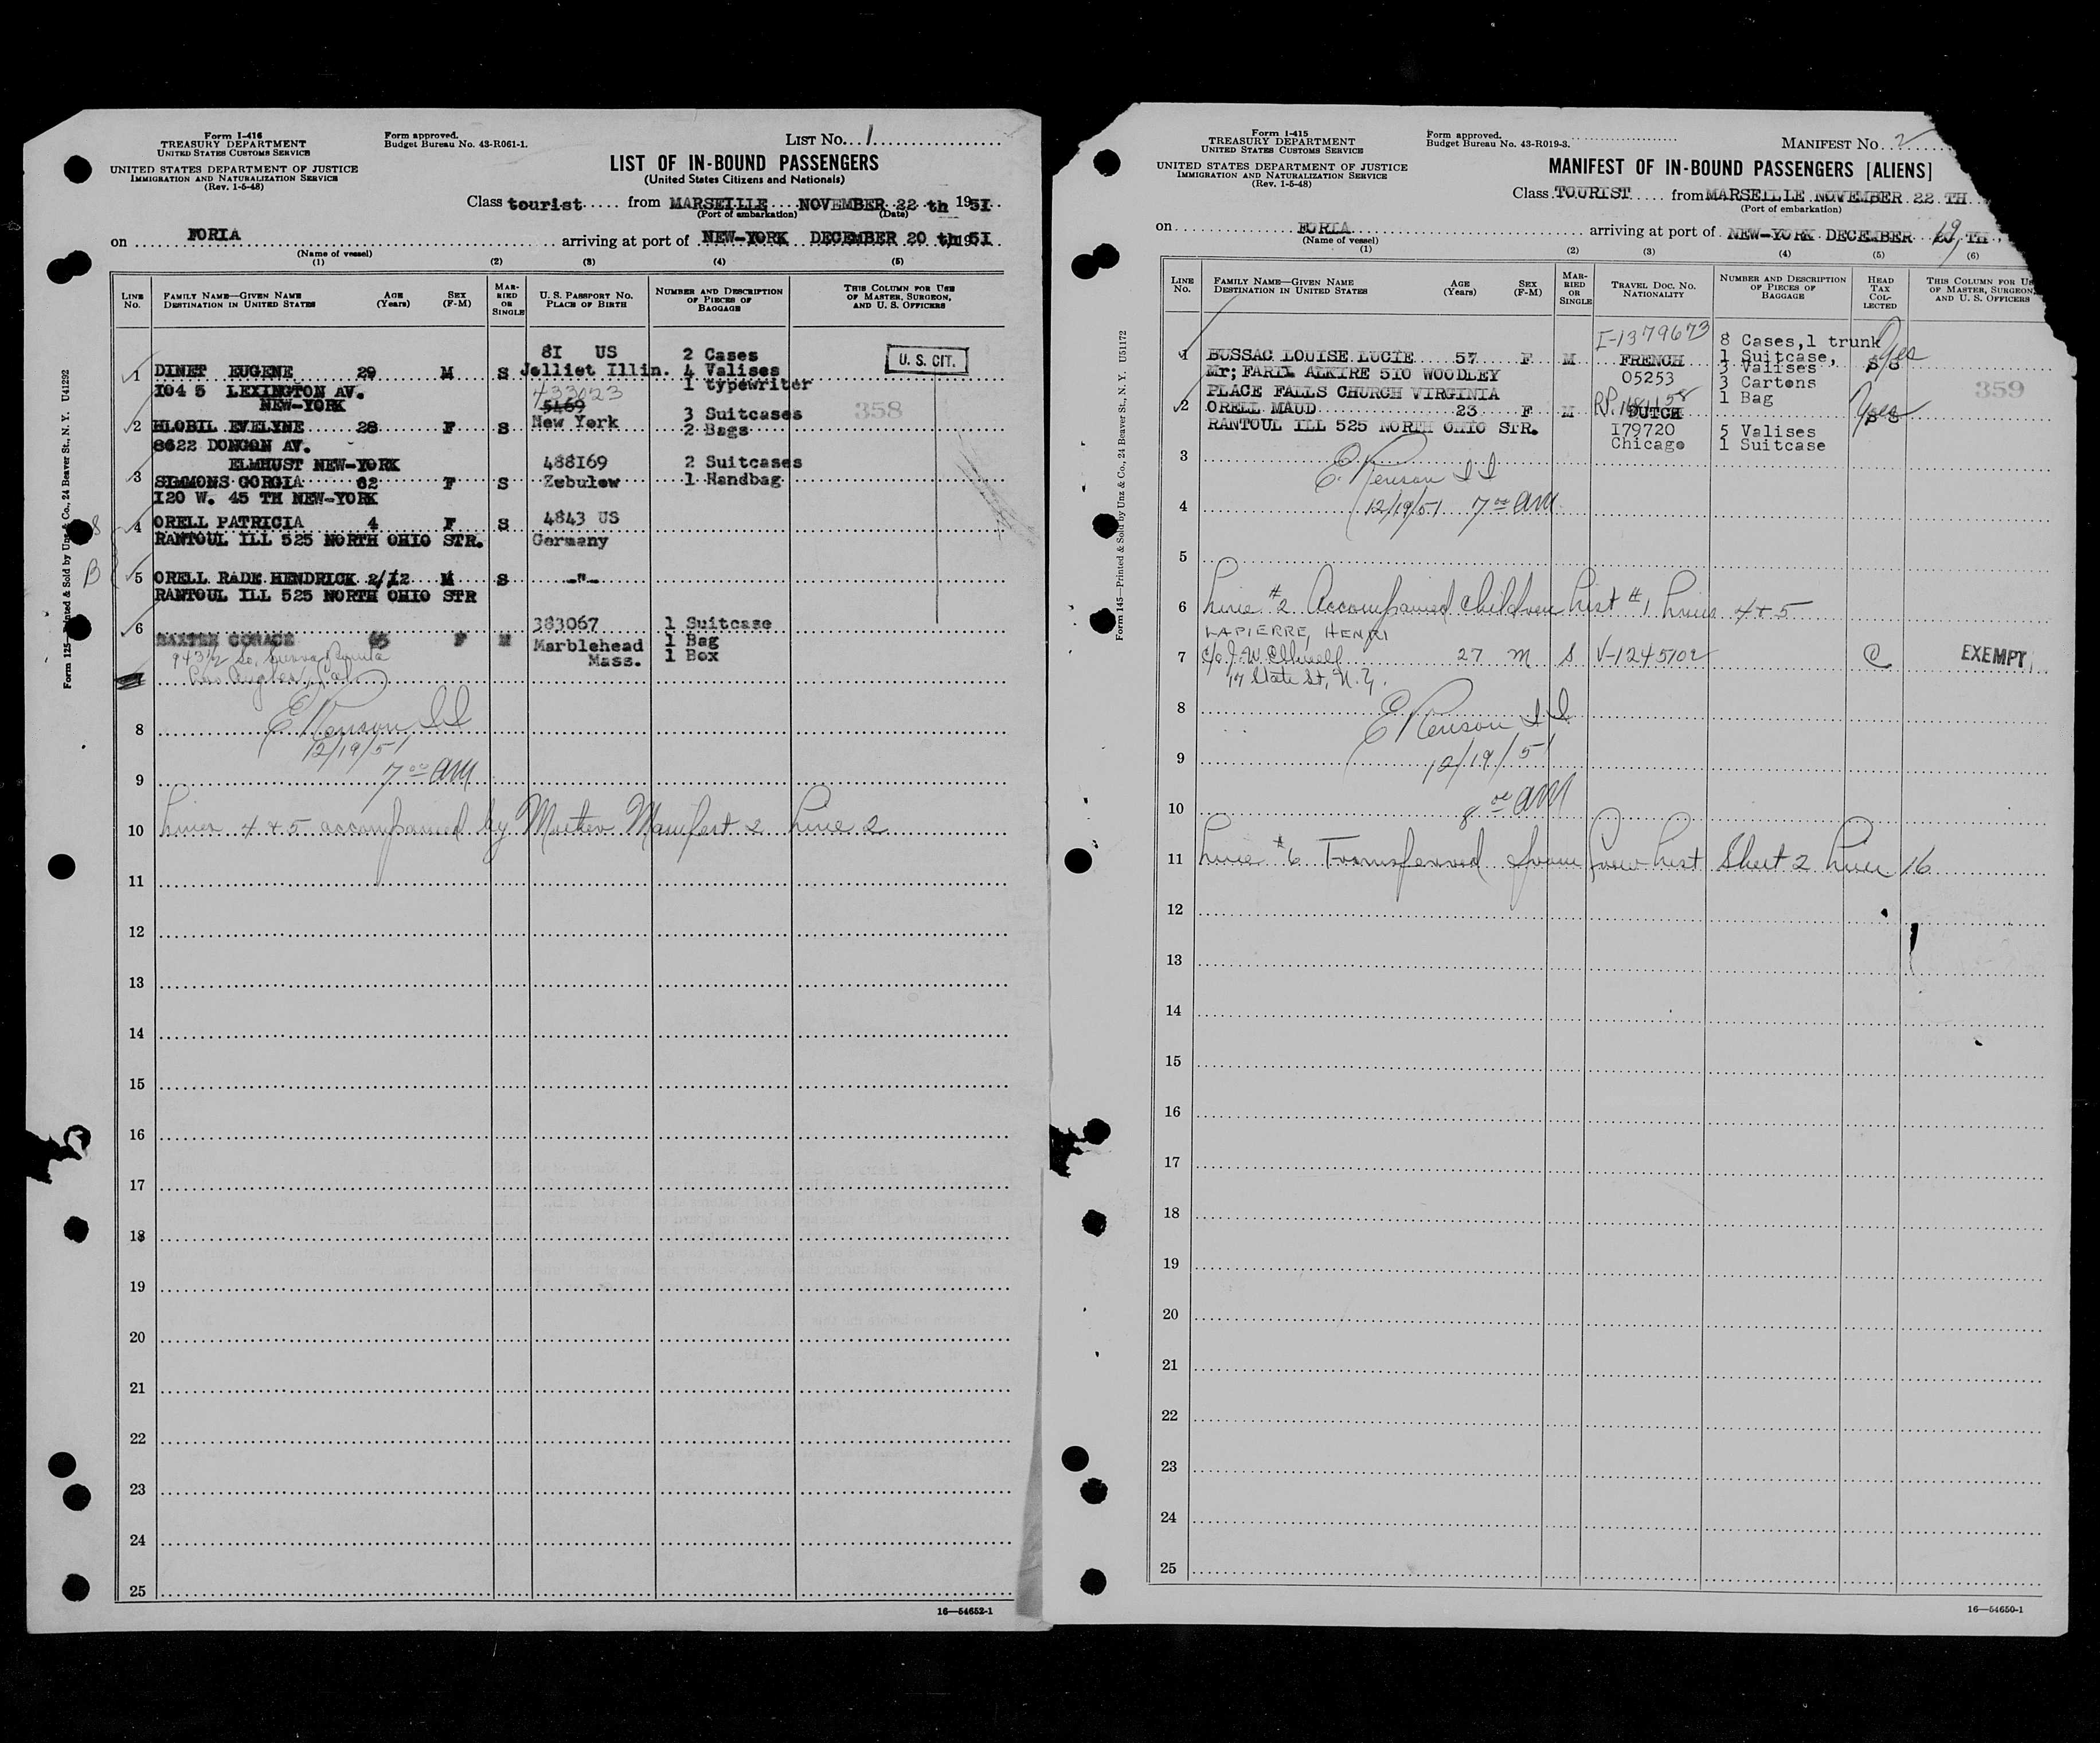 Form I-416
TREASURY DEPARTMENT
UNITED STATES CUSTOMS SERVICE
UNITED STATES DEPARTMENT OF JUSTICE
IMMIGRATION AND NATURALIZATION SERVICE
(Rev. 1-5-48)
Form approved.
Budget Bureau No. 43-R061-1.
LIST No. 1
LIST OF IN-BOUND PASSENGERS
(United States Citizens and Nationals)
Class tourist from MARSEILLE NOVEMBER 22 th 1951
(Port of embarkation) (Date)
on FORIA arriving at port of NEW-YORK DECEMBER 20 th 1951
(Name of vessel)
(1) (2) (3) (4) (5)
LINE No. FAMILY NAME—GIVEN NAME DESTINATION IN UNITED STATES AGE (Years) SEX (F-M) MARRIED OR SINGLE U. S. PASSPORT NO. PLACE OF BIRTH NUMBER AND DESCRIPTION OF PIECES OF BAGGAGE THIS COLUMN FOR USE OF MASTER, SURGEON, AND U. S. OFFICERS
8I US 2 Cases U. S. CIT.
1 DINET EUGENE 29 M S Jolliet Illin. 4 Valises
I04 5 LEXINGTON AV. 433023 1 typewriter
NEW-YORK 5469 3 Suitcases 358
2 HLOBIL EVELYNE 28 F S New York 2 Bags
8622 DONGON AV.
ELMHUST NEW-YORK 488I69 2 Suitcases
3 SIMMONS GORGIA 62 F S Zebulow 1 Handbag
I20 W. 45 TH NEW-YORK
4 ORELL PATRICIA 4 F S 4843 US
RANTOUL ILL 525 NORTH OHIO STR. Germany
5 ORELL RADE HENDRICK 2/I2 M S -"-
RANTOUL ILL 525 NORTH OHIO STR
383067 1 Suitcase
6 BAXTER 65 F M Marblehead 1 Bag
943½ So. Mass. 1 Box
Los Angeles, Cal
E Kenson I I
8
12/19/51
9 7 00 AM
10 Lines 4 + 5 accompanied by Mother Manifest 2 Line 2
11
12
13
14
15
16
17
18
19
20
21
22
23
24
25
16—54652-1
Form 125—Printed & Sold by Unz & Co., 24 Beaver St., N. Y. U41292
B
Form I-415
TREASURY DEPARTMENT
UNITED STATES CUSTOMS SERVICE
UNITED STATES DEPARTMENT OF JUSTICE
IMMIGRATION AND NATURALIZATION SERVICE
(Rev. 1-5-48)
Form approved.
Budget Bureau No. 43-R019-3.
MANIFEST No. 2
MANIFEST OF IN-BOUND PASSENGERS [ALIENS]
Class TOURIST from MARSEILLE NOVEMBER 22 TH
(Port of embarkation)
on FORIA arriving at port of NEW-YORK DECEMBER 19 TH
(Name of vessel)
(1) (2) (3) (4) (5) (6)
LINE No. FAMILY NAME—GIVEN NAME DESTINATION IN UNITED STATES AGE (Years) SEX (F-M) MARRIED OR SINGLE TRAVEL DOC. NO. NATIONALITY NUMBER AND DESCRIPTION OF PIECES OF BAGGAGE HEAD TAX COLLECTED THIS COLUMN FOR US OF MASTER, SURGEON, AND U. S. OFFICERS
I-1379673 8 Cases,1 trunk
1 BUSSAC LOUISE LUCIE 57 F M FRENCH 1 Suitcase, yes
Mr; FARIL ALKIRE 5I0 WOODLEY 05253 3 Valises
PLACE FALLS CHURCH VIRGINIA 3 Cartons 359
2 ORELL MAUD 23 F M DUTCH 1 Bag yes
RANTOUL ILL 525 NORTH OHIO STR. I79720 5 Valises
3 Chicago 1 Suitcase
E. Kenson I I
4 12/19/51 7 00 AM
5
6 Line #2 Accompanied children List #1 Lines 4 + 5
LAPIERRE, HENRI
7 c/o J. W. 27 M S V-1245102 C EXEMPT
17 State St, N. Y.
8 E Kenson I I
9 12/19/51
10 8 00 AM
11 Line #6 Transferred from Crew List Sheet 2 Line 16
12
13
14
15
16
17
18
19
20
21
22
23
24
25
16—54650-1
Form 145—Printed & Sold by Unz & Co., 24 Beaver St., N. Y. U51172